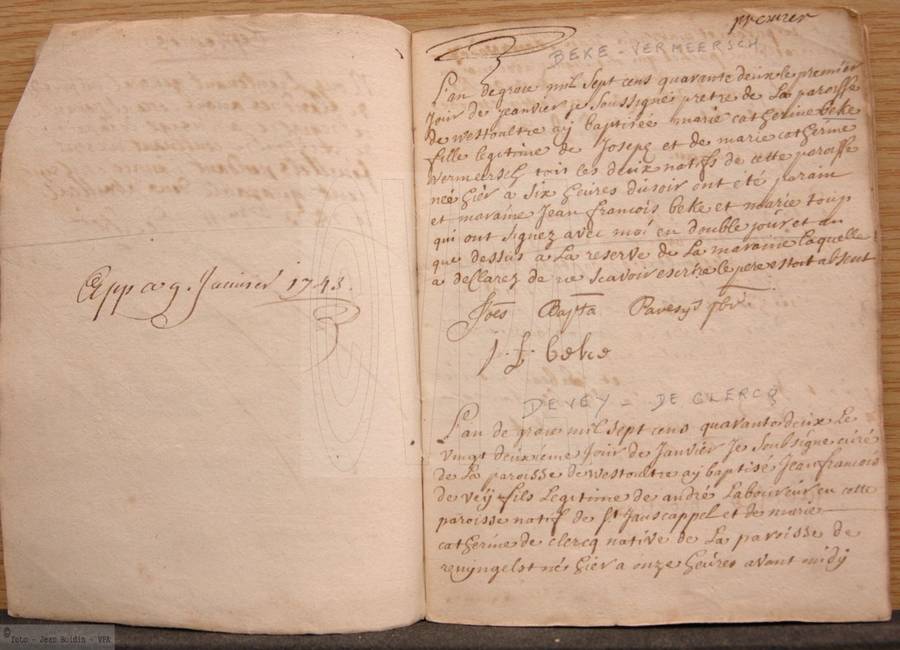 App a 9. Januier 1743.
premier
BEKE - VERMEERSCH
L'an de grace mil Sept cens quarante deux le premier
Jour de Janvier je Soussigné pretre de La paroisse
de westoultre aÿ baptisée marie catherine beke
fille legitime de Joseph et de marie catherine
vermeersch tous les deux natifs de cette paroisse
neé hier a six heures du soir ont été parain
et maraine Jean francois beke et marie toup
qui ont signez avec moi en double jour et an
que dessus a La reserve de La maraine laquelle
a declarez de ne scavoir escrire le pere estoit absent
Joēs Bapta
j. f. beke
DEVEY - DE CLERCQ
L'an de grace mil Sept cens quarante deux Le
vingt deuxieme Jour de Janvier Je Soubsigné curé
de La paroisse de westoultre aÿ baptisé Jean francois
de veÿ fils Legitime de andré Laboureur en cette
paroisse natif de St Janscappel et de marie
catherine de clercq native de La paroisse de
renyngelst né hier a onze heüres avant midÿ
foto - Jean Boidin - VPA